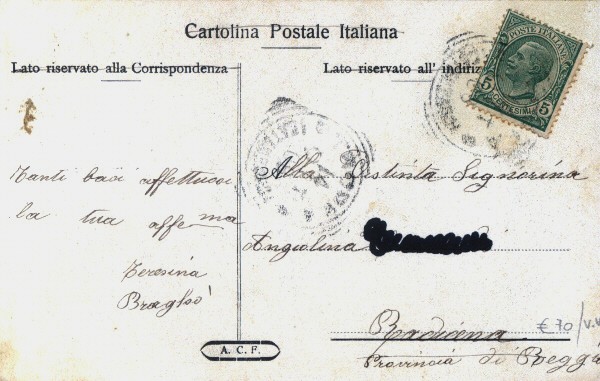 Cartolina Postale Italiana
Lato riservato alla Corrispondenza
Lato riservato all' indiriz
POSTE ITALIANE
5 5
CENTESIMI
Tanti baci affettuosi
la tua affe ma
Teresina
Alla Distinta Signorina
Angiolina
Radicena
Provincia di Reggi
€ 70 / v.v
A. C. F.